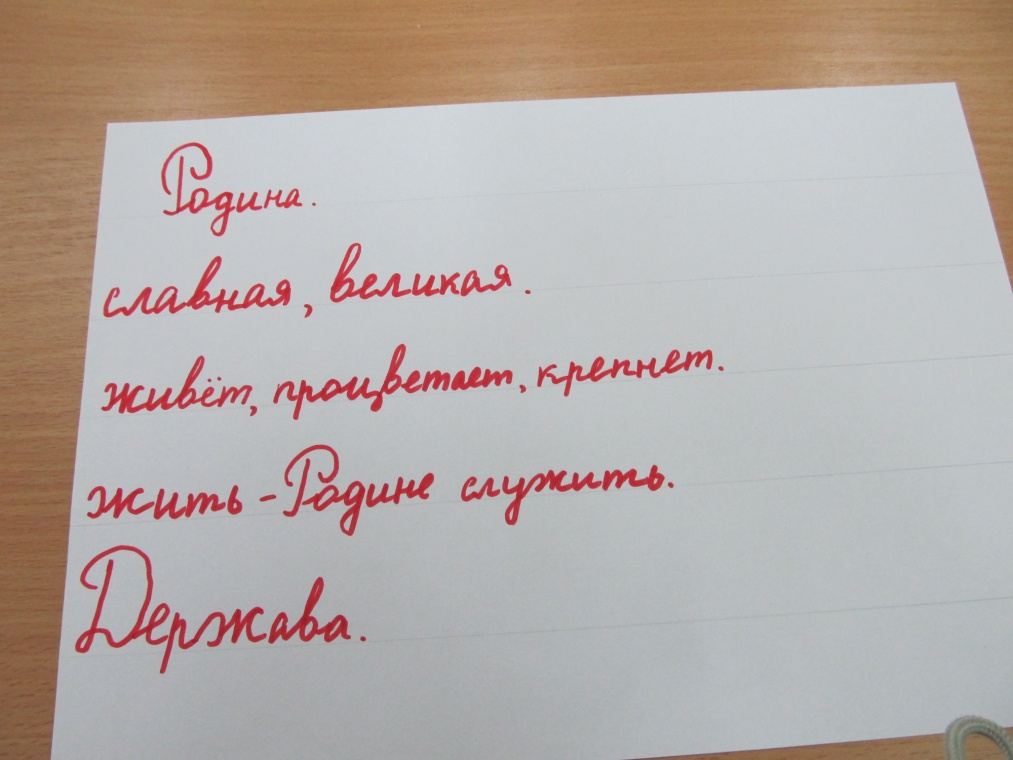 Родина.
славная, великая.
живёт, процветает, крепнет.
жить - Родине служить.
Держава.